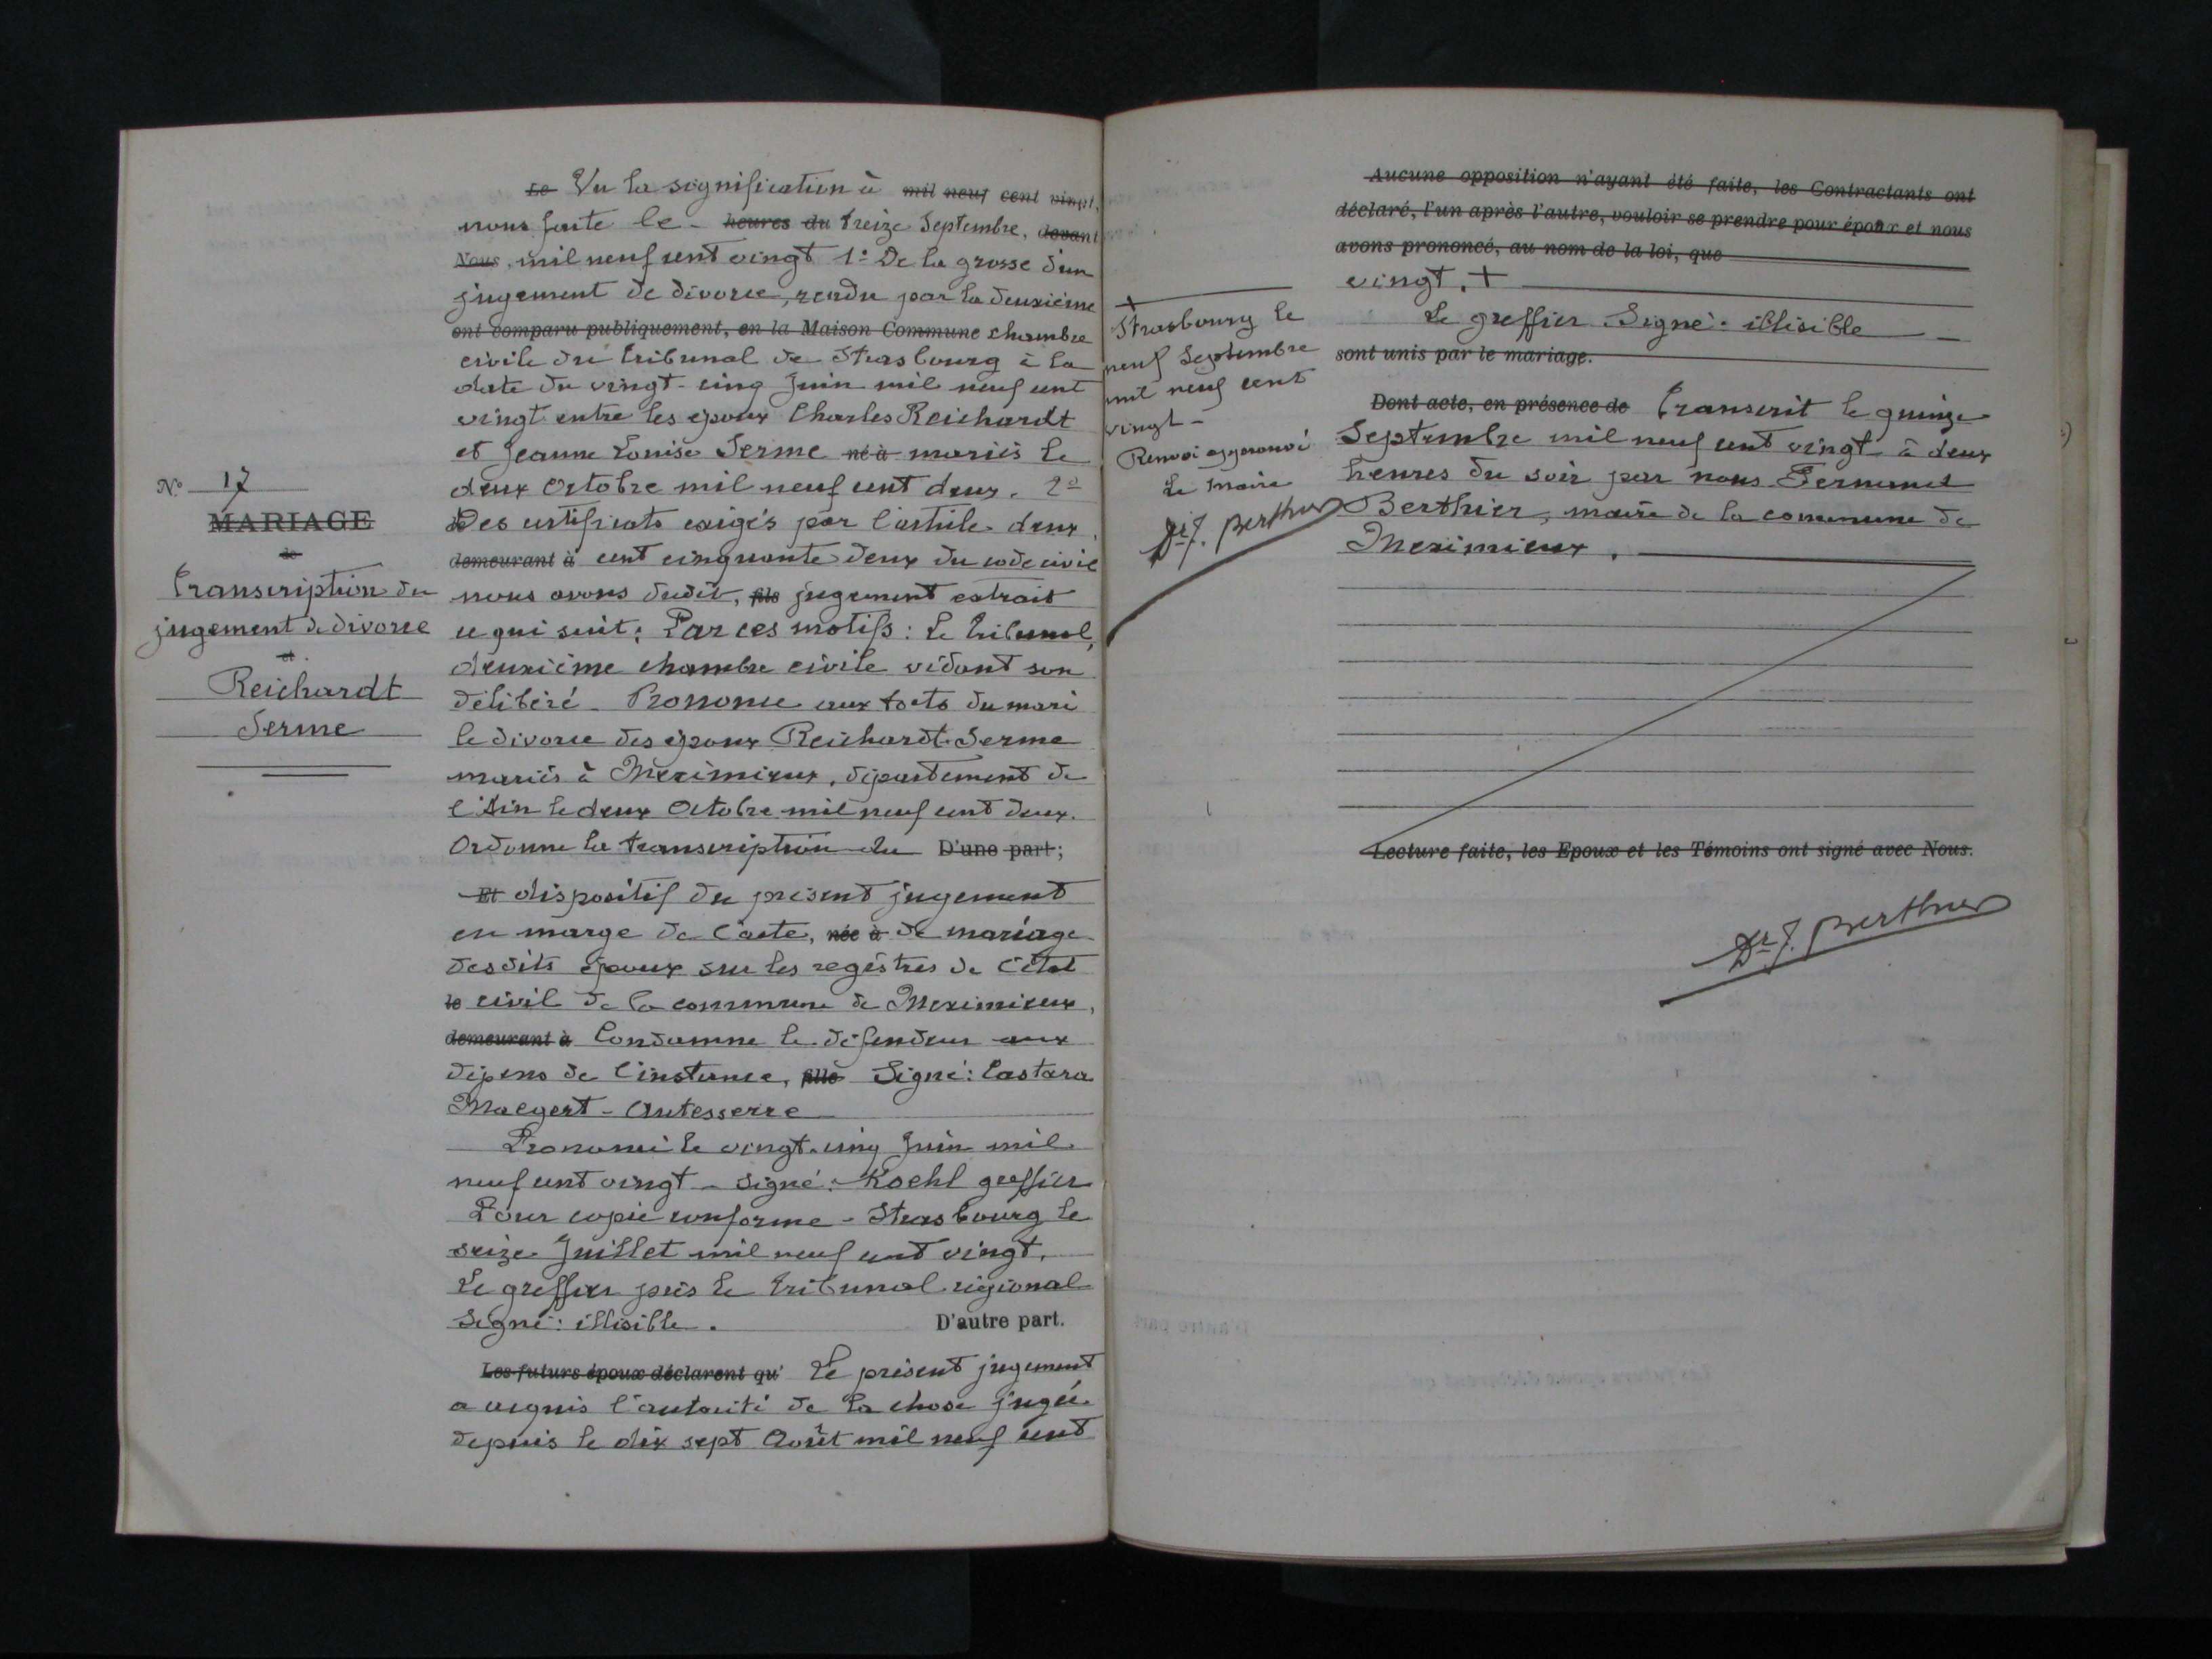 N° 17
MARIAGE
de
Transcription du
jugement de divorce
et
Reichardt
Serme
Le Vu la signification à mil neuf cent vingt,
nous faite le heures du treize Septembre, devant
Nous, mil neuf cent vingt 1° De la grosse d'un
jugement de divorce, rendu par la deuxième
ont comparu publiquement, en la Maison Commune chambre
civile du tribunal de Strasbourg à la
date du vingt-cinq Juin mil neuf cent
vingt entre les époux Charles Reichardt
et Jeanne Louise Serme né à mariés le
deux Octobre mil neuf cent deux. 2°
Des certificats exigés par l'article deux
demeurant à cent cinquante deux du code civil
nous avons dudit, fils jugement extrait
ce qui suit; Par ces motifs: Le tribunal,
deuxième chambre civile vidant son
délibéré _ Prononce aux torts du mari
le divorce des époux Reichardt-Serme
mariés à Meximieux, département de
l'Ain le deux Octobre mil neuf cent deux.
Ordonne la transcription du D'une part;
Et dispositif du présent jugement
en marge de l'acte, née à de mariage
desdits époux sur les registres de l'état
le civil de la commune de Meximieux,
demeurant à Condamne le défendeur aux
dépens de l'instance, fille Signé: Castara
Maegert - Antesserre
Prononcé le vingt-cinq Juin mil
neuf cent vingt - signé: Koehl greffier
Pour copie conforme - Strasbourg le
seize Juillet mil neuf cent vingt.
Le greffier près le tribunal régional
signé: illisible. D'autre part.
Les futurs époux déclarent qu' Le présent jugement
a acquis l'autorité de la chose jugée
depuis le dix sept Août mil neuf cent
Aucune opposition n'ayant été faite, les Contractants ont
déclaré, l'un après l'autre, vouloir se prendre pour époux et nous
avons prononcé, au nom de la loi, que
vingt. +
Le greffier Signé: illisible
sont unis par le mariage.
+
Strasbourg le
neuf Septembre
mil neuf cent
vingt -
Renvoi approuvé
Le Maire
Dr J. Berthier
Dont acte, en présence de Transcrit le quinze
Septembre mil neuf cent vingt à deux
heures du soir par nous Fernand
Berthier, maire de la commune de
Meximieux.
Lecture faite, les Epoux et les Témoins ont signé avec Nous.
Dr J. Berthier